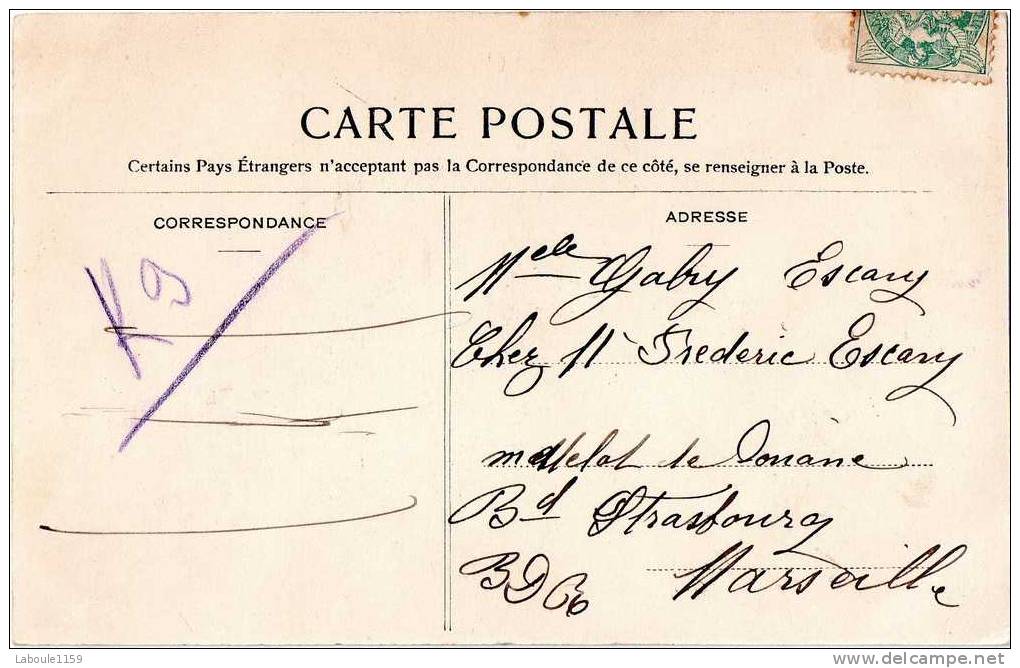 CARTE POSTALE
Certains Pays Étrangers n'acceptent pas la Correspondance de ce côté, se renseigner à la Poste.
CORRESPONDANCE
K 9
ADRESSE
Melle Gabry Escany
Chez M Frederic Escany
mattelot de Douane
Bd Strasbourg
Marseille
BDR
Laboule1159
delcampe.net